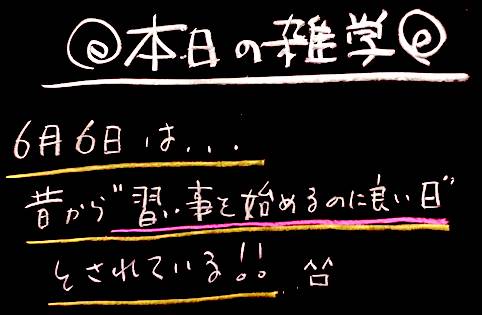 本日の雑学
6月6日は...
昔から"習い事を始めるのに良い日"
とされている!!